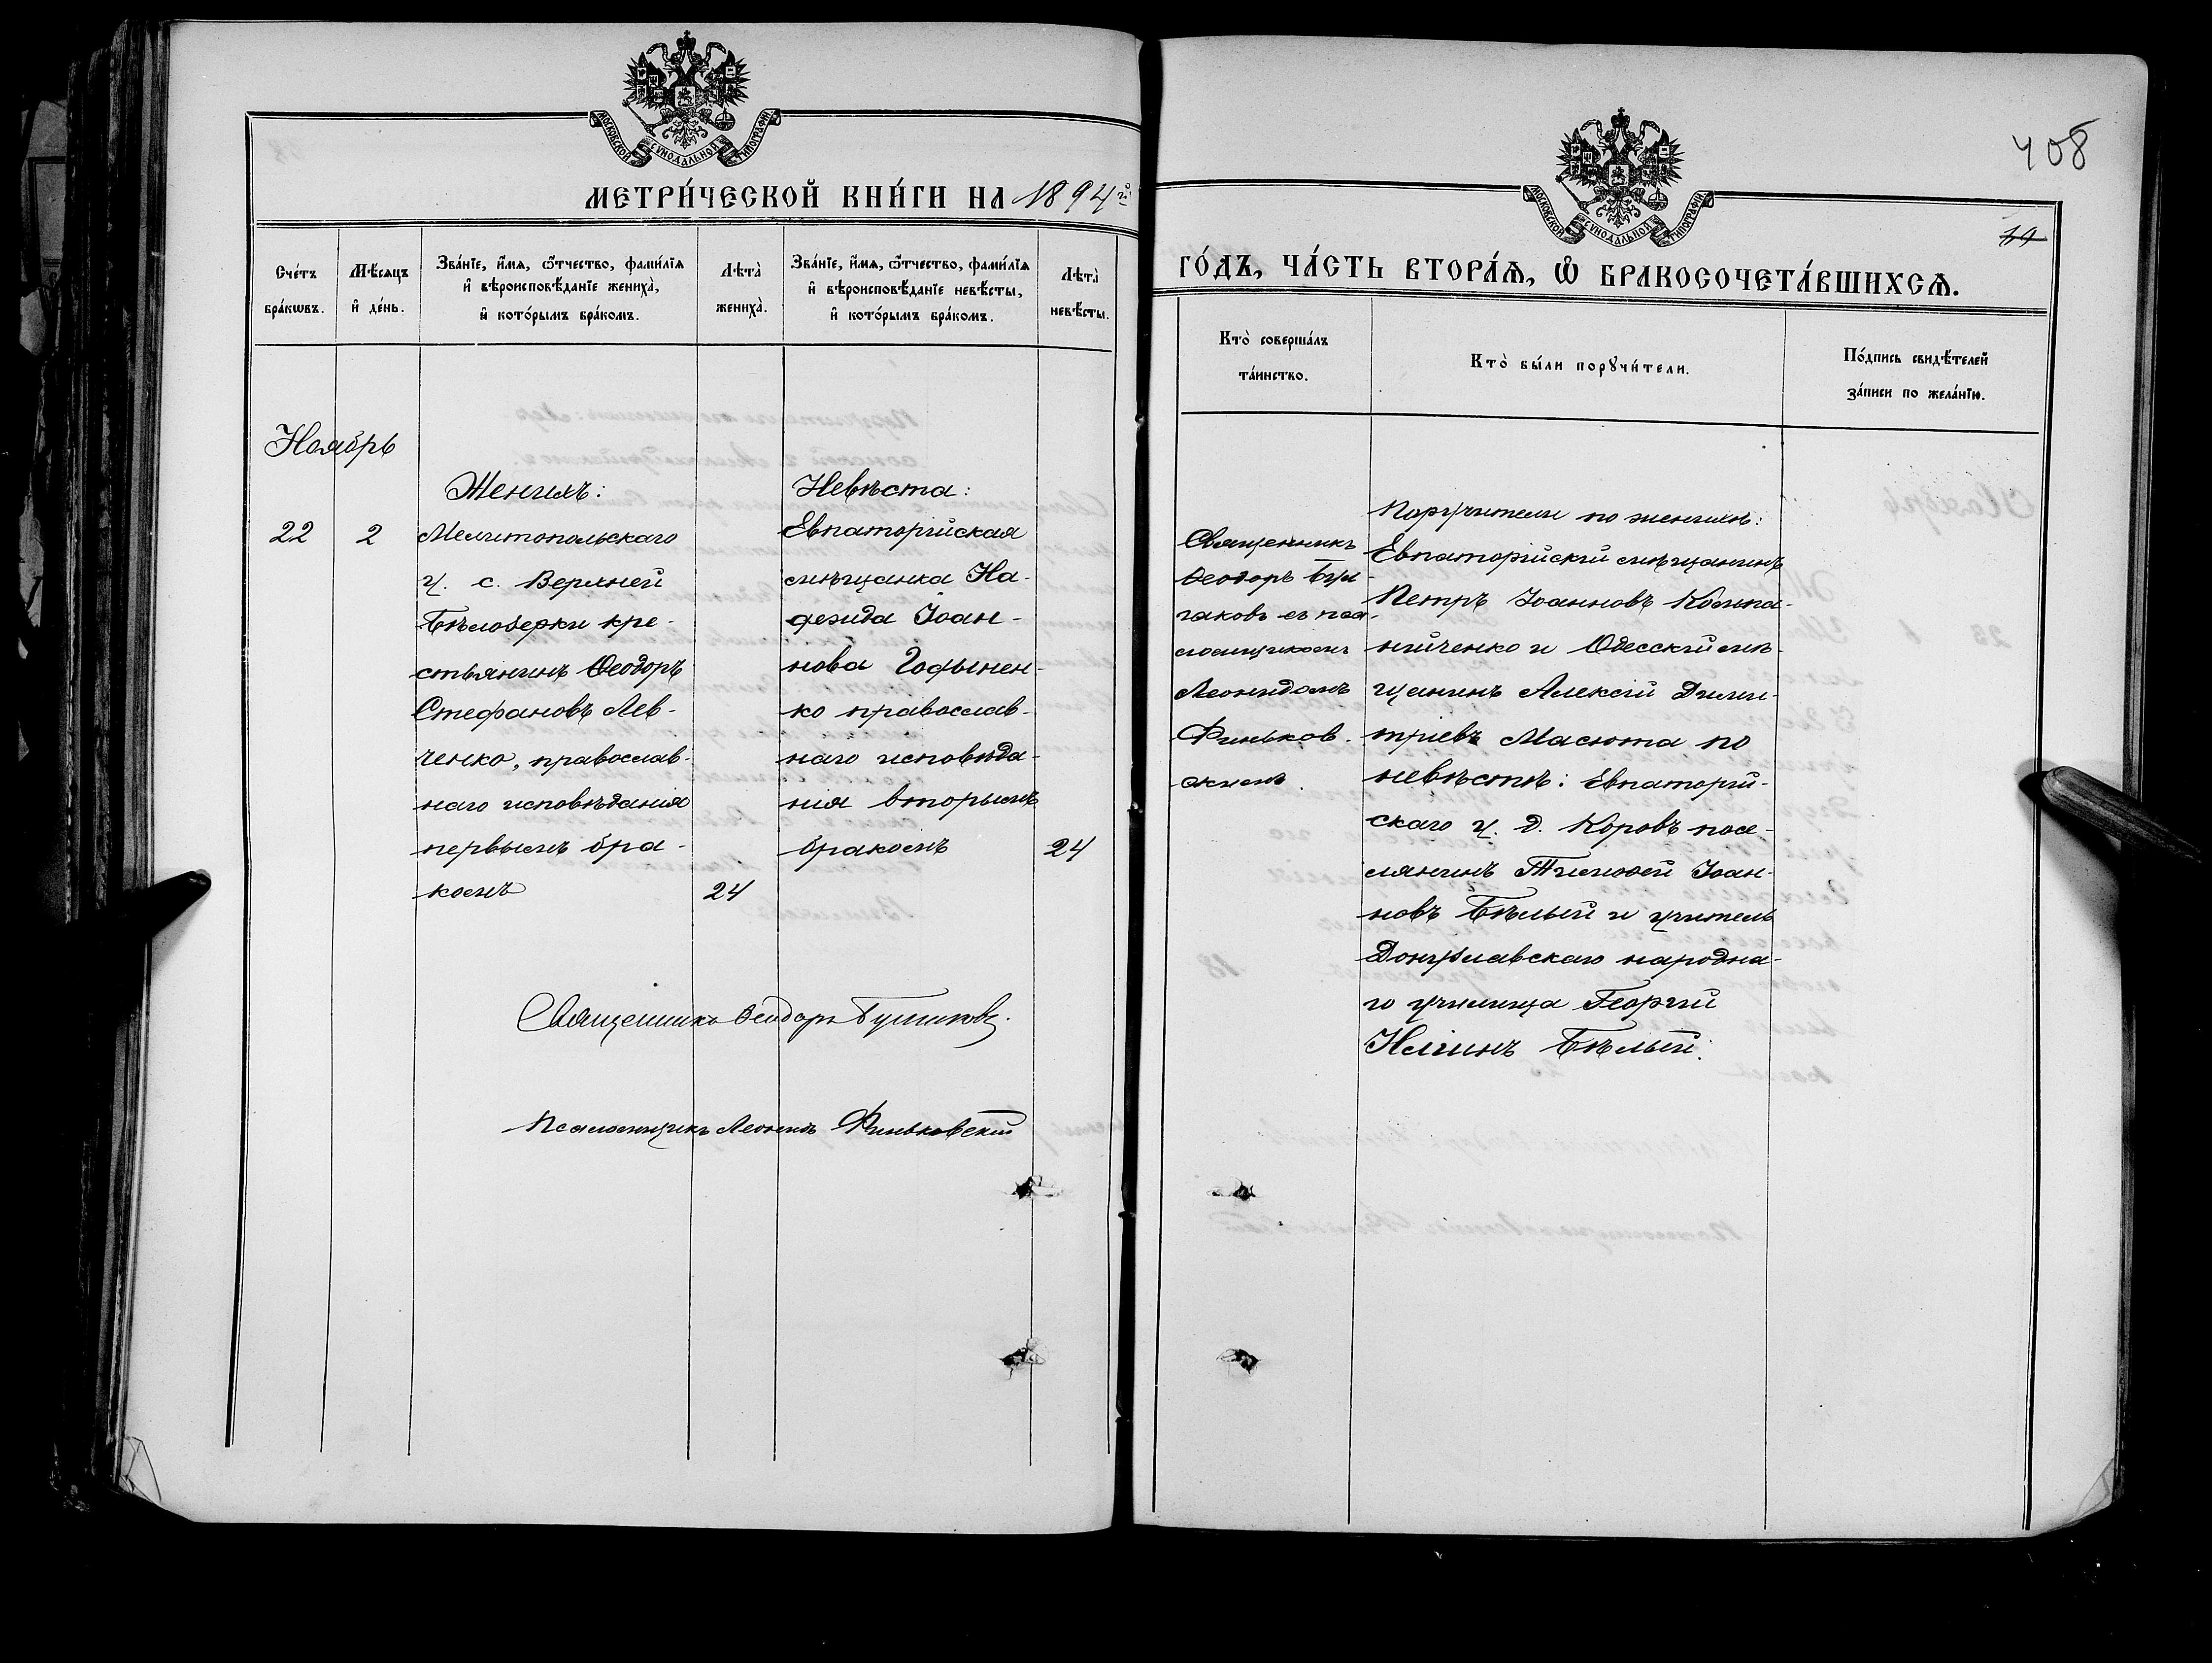 МОСКОВСКОЙ СѴНОДАЛЬНОЙ ТИПОГРАФІИ
МЕТРИ́ЧЕСКОЙ КНИ́ГИ НА 1894й
Сче́тъ бра́кѡвъ.
Мѣ́сяцъ и҆ де́нь.
Зва́нїе, и҆́мѧ, ѻ҆́тчество, фами́лїѧ
и҆ вѣроисповѣ́данїе жениха̀,
и҆ кото́рымъ бра́комъ.
Лѣта̀ жениха̀.
Зва́нїе, и҆́мѧ, ѻ҆́тчество, фами́лїѧ
и҆ вѣроисповѣ́данїе невѣ́сты,
и҆ кото́рымъ бра́комъ.
Лѣта̀ невѣ́сты.
Ноябрь
22
2
Женихъ:
Мелитопольскаго
у. с. Верхней
Бѣлозерки кре-
стьянинъ Ѳеодоръ
Стефановъ Лев-
ченко, православ-
наго исповѣданія
первымъ бра-
комъ
24
Невѣста:
Евпаторійская
мѣщанка На-
дежда Іоан-
нова Годынен-
ко православ-
наго исповѣда-
нія вторымъ
бракомъ
24
Священникъ Ѳеодоръ Булгаковъ.
Псаломщикъ Леонидъ Финьковскій
408
МОСКОВСКОЙ СѴНОДАЛЬНОЙ ТИПОГРАФІИ
ГО́ДЪ, ЧА́СТЬ ВТОРА́Ѧ, Ѡ҆ БРАКОСОЧЕТА́ВШИХСѦ.
Кто̀ соверша́лъ
та́инство.
Кто̀ бы́ли порꙋчи́тели.
По́дпись свидѣ́телей
за́писи по жела́нїю.
Священникъ
Ѳеодоръ Бул-
гаковъ съ пса-
ломщикомъ
Леонидомъ
Финьков-
скимъ.
Поручители по женихѣ:
Евпаторійскій мѣщанинъ
Петръ Іоанновъ Компа-
нийченко и Одесскій мѣ-
щанинъ Алексій Дими-
тріевъ Масюта по
невѣстѣ: Евпаторій-
скаго у. д. Коровъ посе-
лянинъ Тимоѳей Іоан-
новъ Бѣлый и учитель
Донузлавскаго народна-
го училища Георгій
Ильинъ Бѣлый.